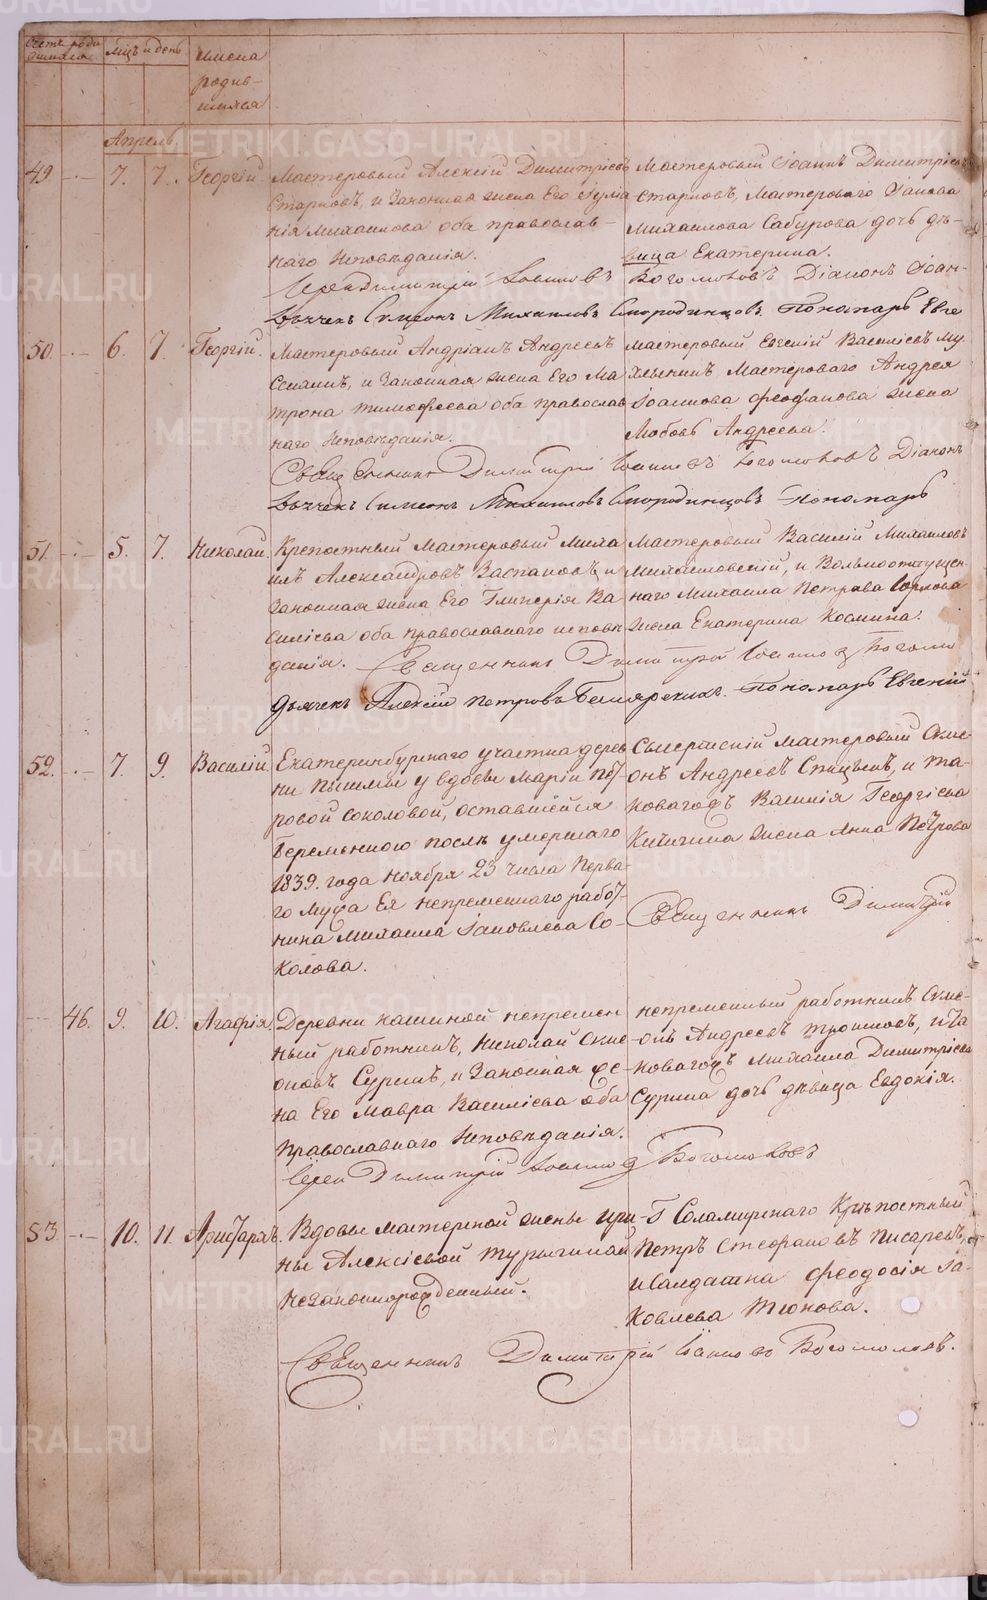 Счетъ роди
вшихся
мц̃ъ и день
имена
родив-
шихся
Апрель
49 7. 7. Георгій.
Мастеровый Алексій Димитріевъ
Старковъ, и Законная жена Его Іулiа-
нія Михаилова оба православ-
наго Исповѣданія.
Мастеровый Іоаннъ Димитріевъ
Старковъ, Мастероваго Іакова
Михаилова Сабурова дочь дѣ-
вица Екатерина.
Іерей Димитрій Іоанновъ Богомоловъ Діаконъ Іоан-
дьячекъ Симеонъ Михаиловъ Смородинцовъ. Пономарь Евге
50. 6. 7. Георгій.
Мастеровый Андріанъ Андреевъ
и Законная жена Его Ма-
трона Тимофеева оба православ
наго Исповѣданія.
Мастеровый Евгеній Василіевъ Му-
Мастероваго Андрея
Іоаннова Феофанова жена
Любовь Андреева.
Священникъ Димитрій Іоанновъ Богомоловъ Діаконъ
дьячекъ Симеонъ Михаиловъ Смородинцовъ Пономарь
51. 5. 7. Николай.
Крепостный Мастеровый Миха
илъ Александровъ и
Законная жена Его Гликерія Ва
силіева оба православнаго исповѣ
данія.
Мастеровый Василій Михаиловъ
Михаиловскій, и Вольноотпущен-
наго Михаила Петрова
жена Екатерина Космина.
Священникъ Димитрій Іоанновъ Богомо
дьячекъ Алексій Петровъ Пономарь Евгеній
52. 7. 9. Василій.
Екатеринбургаго участка дерев
ни Пышмы у вдовы Маріи Пет-
ровой Соколовой, оставшейся
беременною послѣ умершаго
1839. года Ноября 23 числа Перва-
го Мужа Ея непременнаго работ-
ника Михаила Іаковлева Со-
колова.
Сысертскій мастеровый Симе-
онъ Андреевъ Спицынъ, и та-
коваго жъ Василія Георгіева
Кичигина жена Анна Петрова
Священникъ Димитрій
46. 9. 10. Агафія.
Деревни кашиной непремен
ный работникъ, Николай Симе-
оновъ Суринъ, и Законная же-
на Его Мавра Василіева оба
Православнаго Исповѣданія.
непременный работникъ Симе-
онъ Андреевъ Трошковъ, и та
коваго жъ Михаила Димитріева
Сурина дочь дѣвица Евдокія.
Іерей Димитрій Іоанновъ Богомоловъ
53 10. 11. Аристархъ.
Вдовы мастерской жены Ири-
ны Алексіевой Турыгиной
Незаконнорожденный.
Г Соламирскаго Крѣпостный
Петръ Стефановъ Писаревъ,
и Салдатка Феодосія Іа-
ковлева Тюнова.
Священникъ Димитрій Іоанновъ Богомоловъ.
METRIKI.GASO-URAL.RU